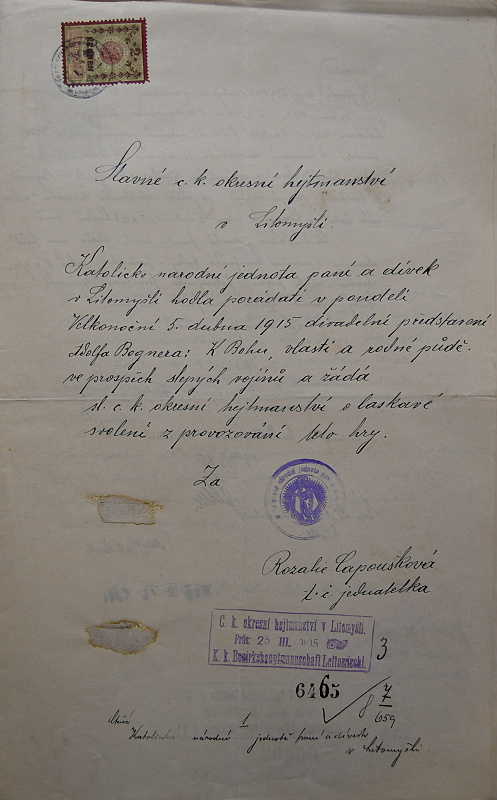 Slavné c. k. okresní hejtmanství
v Litomyšli.
Katolicko národní jednota paní a dívek
v Litomyšli hodlá pořádati v pondělí
Velkonoční 5. dubna 1915 divadelní představení
Adolfa Bognera: K Bohu, vlasti a rodné půdě.
ve prospěch slepých vojínů a žádá
sl. c. k. okresní hejtmanství o laskavé
svolení z provozování této hry.
Za
Rozalie Čapoušková
t. č. jednatelka
C. k. okresní hejtmanství v Litomyšli.
Präs. 25 III. 1915
K. k. Bezirkshauptmannschaft Leitomischl.
3
6465
8 7/659
1
Katolické národní jednotě paní a dívek
v Litomyšli